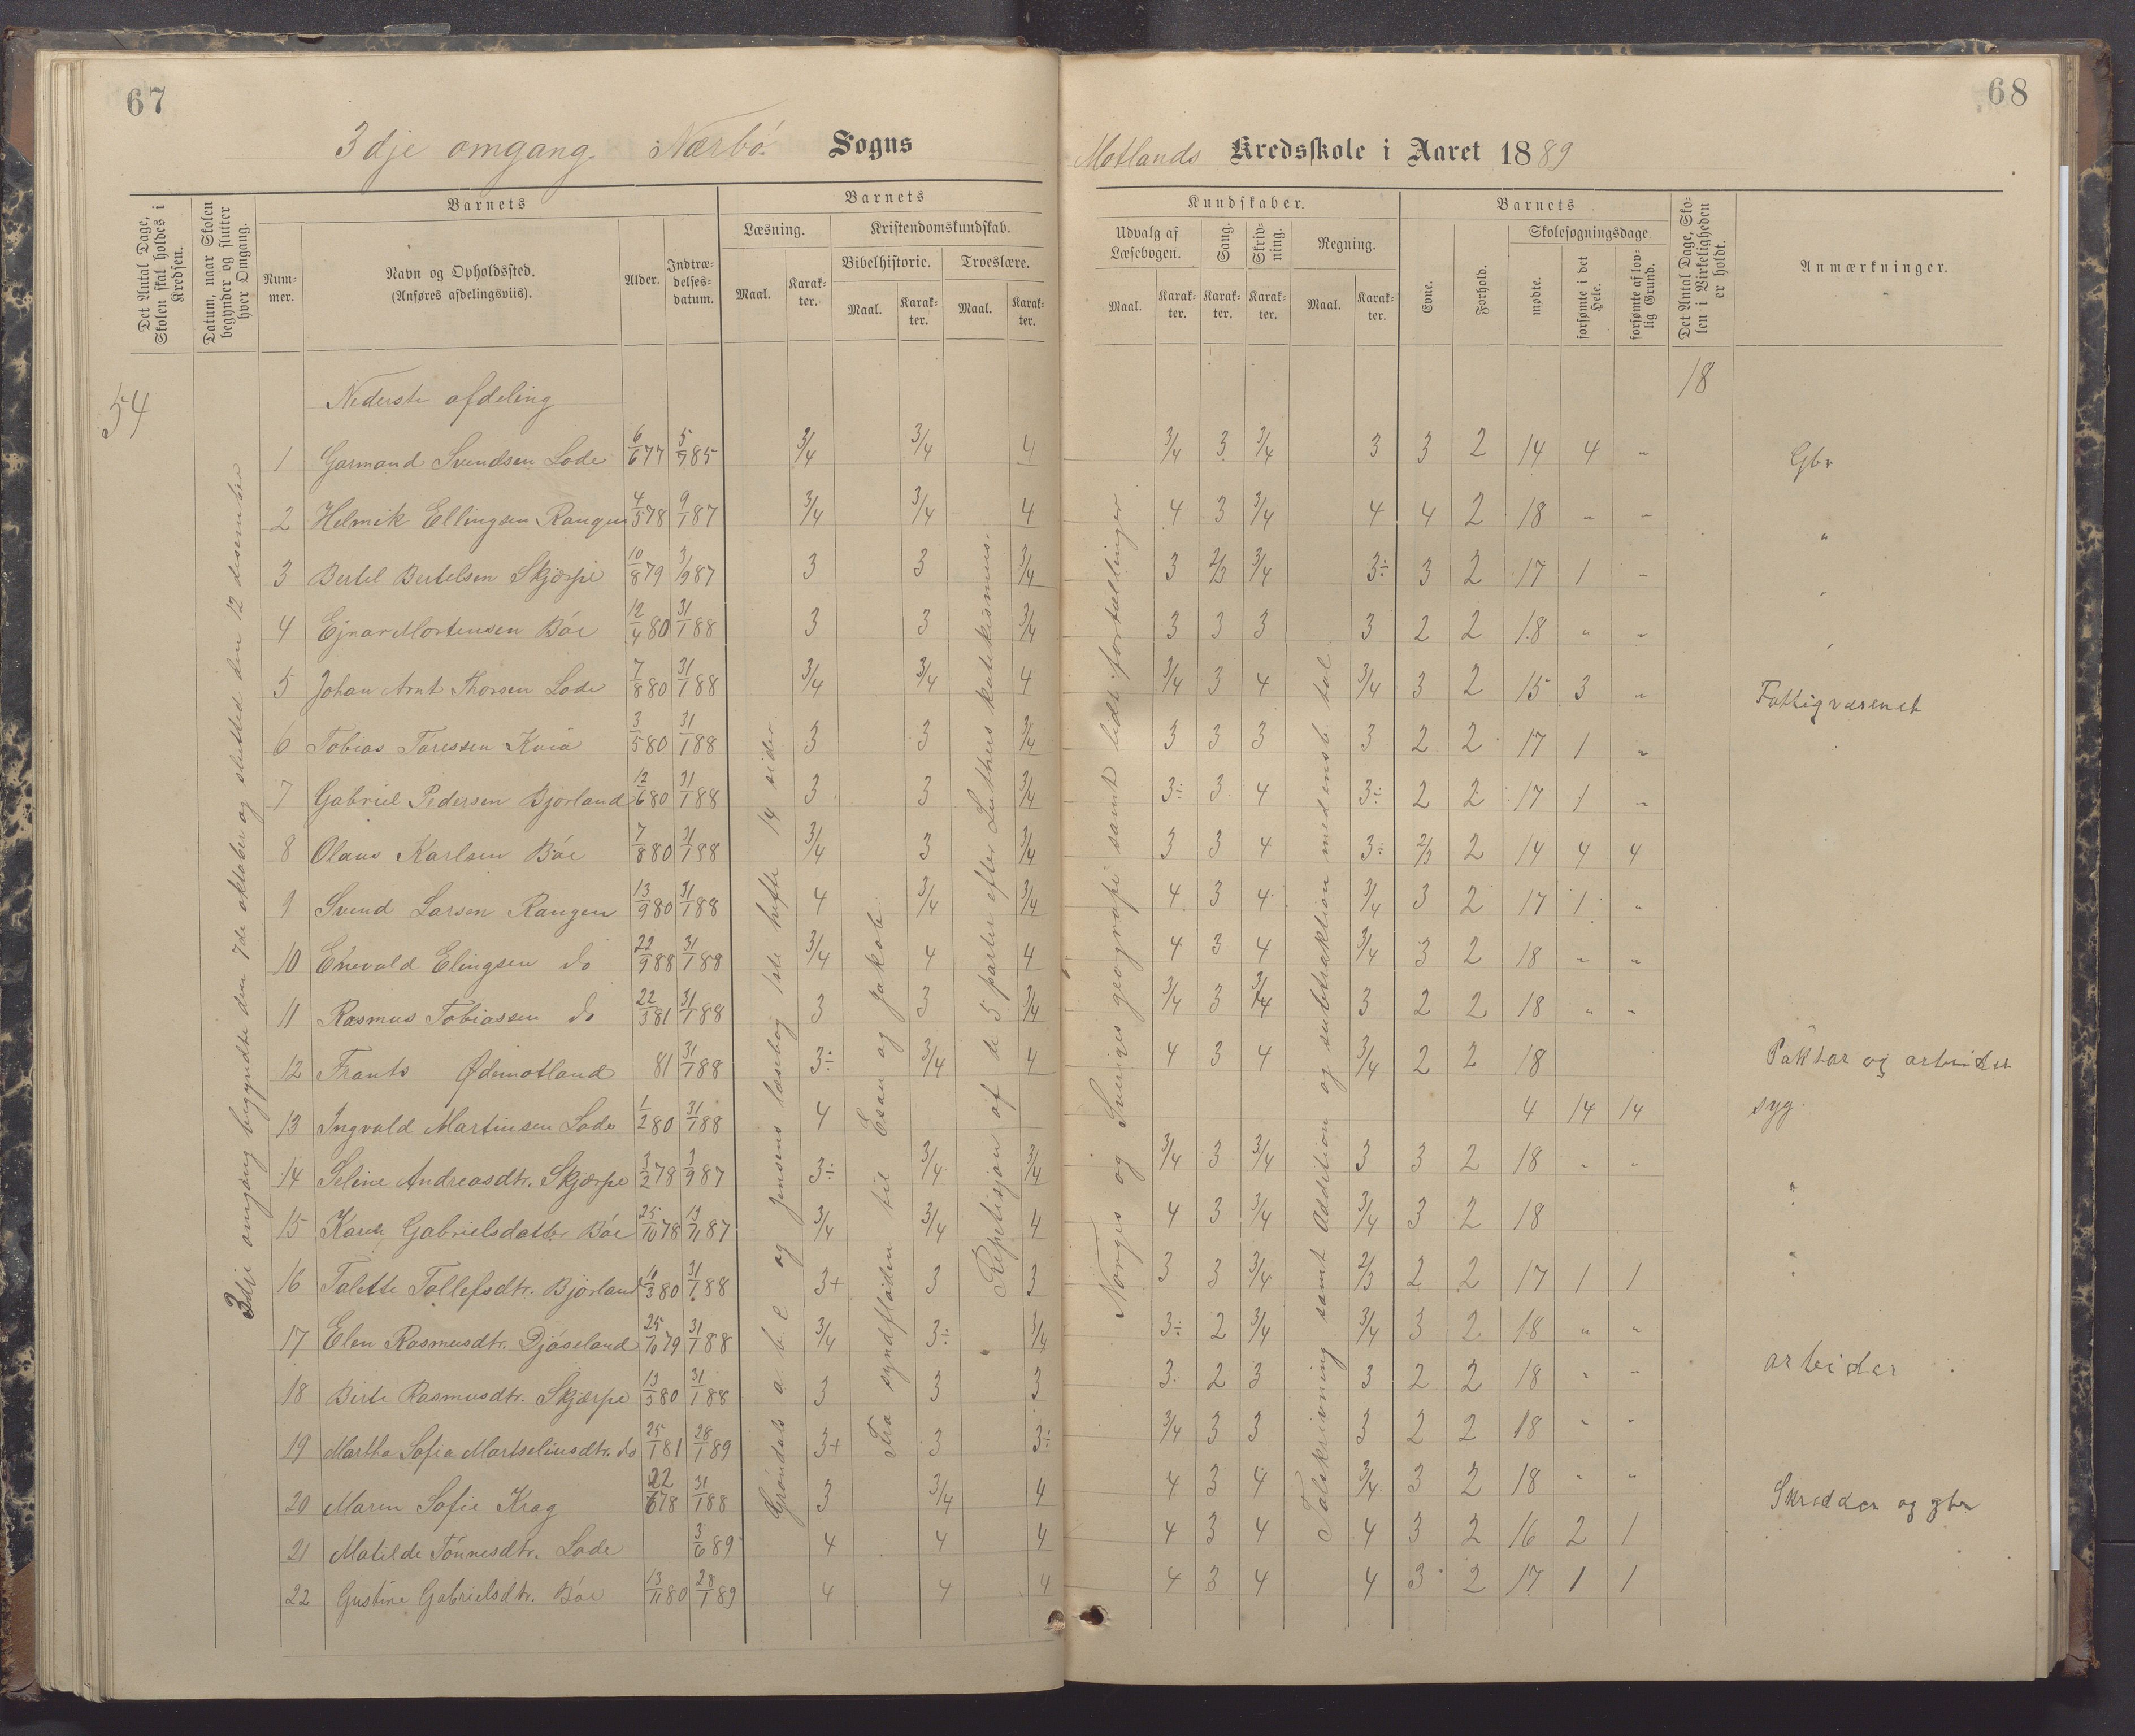 67
68
3dje omgang. Nærbø. Sogns
Motlands Kredsskole i Aaret 1889
Det Antal Dage, Skolen skal holdes i Kredsen.
Datum, naar Skolen begynder og slutter hver Omgang.
Barnets
Nummer.
Navn og Opholdssted.
(Anføres afdelingsviis).
Alder.
Indtrædelsesdatum.
Barnets
Læsning.
Maal.
Karakter.
Kristendomskundskab.
Bibelhistorie.
Maal.
Karakter.
Troeslære.
Maal.
Karakter.
Kundskaber.
Udvalg af Læsebogen.
Maal.
Karakter.
Sang.
Karakter.
Skrivning.
Karakter.
Regning.
Maal.
Karakter.
Barnets
Evne.
Forhold.
Skolesøgningsdage.
mødte.
forsømte i det Hele.
forsømte af lovlig Grund.
Det Antal Dage, Skolen i Virkeligheden er holdt.
Anmærkninger.
54
18
3dje omgang begyndte den 7de oktober og sluttet den 12 desember
Grøndals a b c og Jensens læsebog 1ste hefte 14 sider
Fra syndfloden til Esau og Jakob.
Repetisjon af de 5 parter efter Luthers katekismus.
Norges og Sveriges geografi samt lidt fortællinger
Talskrivning samt Addition og subtraktion med ensb. tal
Nederste afdeling
1 Garmand Svendsen Lode 6/6 77 5/9 85 3/4 3/4 4 3/4 3 3/4 3 3 2 14 4 " Gbr
2 Helmik Ellingsen Rangen 4/5 78 9/1 87 3/4 3/4 4 4 3 3/4 4 4 2 18 " " "
3 Bertel Bertelsen Skjærpe 10/8 79 3/9 87 3 3 3/4 3 2/3 3/4 3÷ 3 2 17 1 "
4 Ejnar Mortensen Bøe 12/4 80 31/1 88 3 3 3/4 3 3 3 3 2 2 18 " "
5 Johan Arnt Thorsen Lode 7/8 80 31/1 88 3/4 3/4 4 3/4 3 4 3/4 3 2 15 3 " Fattigvæsenet
6 Tobias Taressen Kvia 3/5 80 31/1 88 3 3 3/4 3 3 3 3 2 2 17 1 "
7 Gabriel Pedersen Bjorland 12/6 80 31/1 88 3 3 3/4 3÷ 3 4 3÷ 2 2 17 1 "
8 Olaus Karlsen Bøe 7/8 80 31/1 88 3/4 3 3/4 3 3 4 3÷ 2/3 2 14 4 4
9 Svend Larsen Rangen 13/9 80 31/1 88 4 3/4 3/4 4 3 4 3/4 3 2 17 1 "
10 Enevald Elingsen do 22/9 88 31/1 88 3/4 4 4 4 3 4 3/4 3 2 18 " "
11 Rasmus Tobiassen do 22/3 81 31/1 88 3 3 3/4 3/4 3 3/4 3 2 2 18 " "
12 Frants Ødemotland 81 31/1 88 3÷ 3/4 4 4 3 4 3/4 2 2 18 Paktar og arbeider
13 Ingvald Martinsen Lode 1/2 80 31/1 88 4 4 14 14 syg
14 Seline Andreasdtr. Skjærpe 3/2 78 3/9 87 3÷ 3/4 3/4 3/4 3 3/4 3 3 2 18 " "
15 Karen Gabrielsdatter Bøe 25/10 78 13/11 87 3/4 3/4 4 4 3 3/4 3/4 3 2 18
16 Talette Tollefsdtr. Bjorland 11/3 80 31/1 88 3+ 3 3 3 3 3/4 2/3 2 2 17 1 1
17 Elen Rasmusdtr. Djøseland 25/10 79 31/1 88 3/4 3÷ 3/4 3÷ 2 3/4 3/4 3 2 18 " "
18 Birte Rasmusdtr. Skjærpe 13/3 80 31/1 88 3 3 3 3 2 3 3 2 2 18 " " arbeider
19 Martha Sofia Martseliusdtr. do 25/1 81 28/1 89 3+ 3 3÷ 3/4 3 3 3 2 2 18 " "
20 Maren Sofie Krag 22/6 78 31/1 88 3 3/4 4 4 3 4 3/4 3 2 18 " " Skredder og gbr
21 Matilde Tönnesdtr. Lode 3/6 89 4 4 4 4 3 4 4 3 2 16 2 1
22 Gustine Gabrielsdtr. Bøe 13/11 80 28/1 89 4 4 4 4 3 4 4 3 2 17 1 1